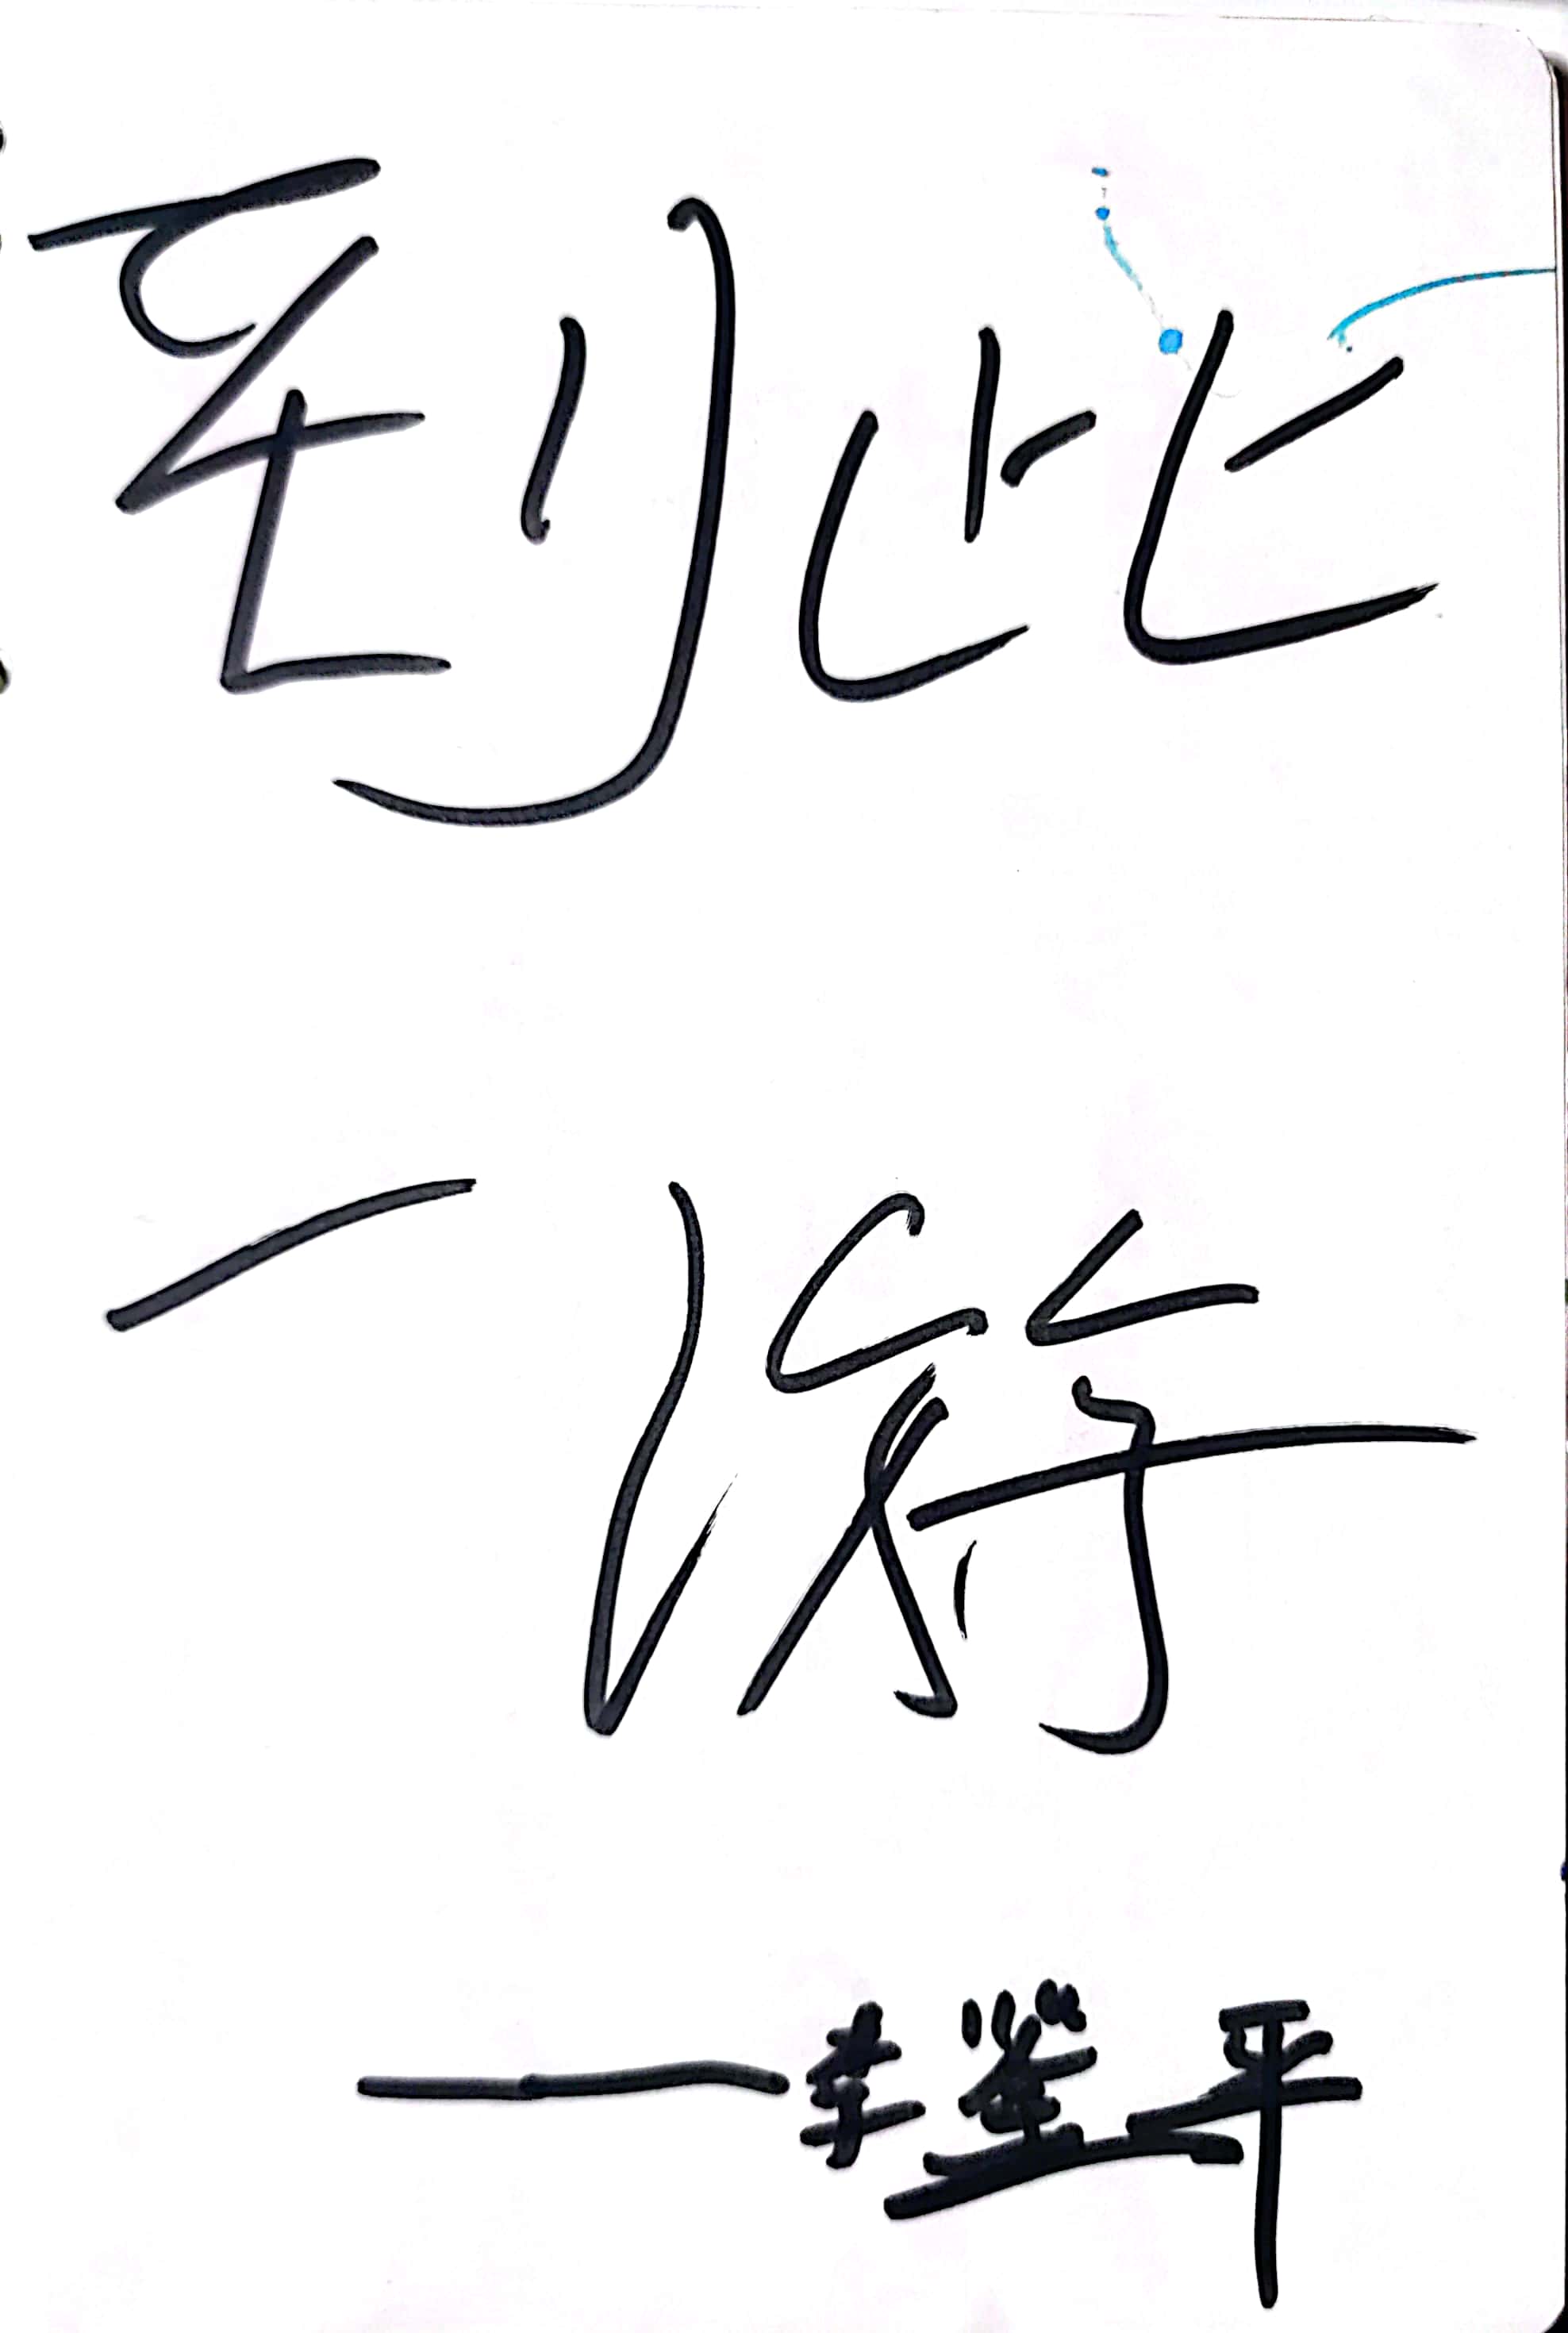 到此
一游
——李莹平